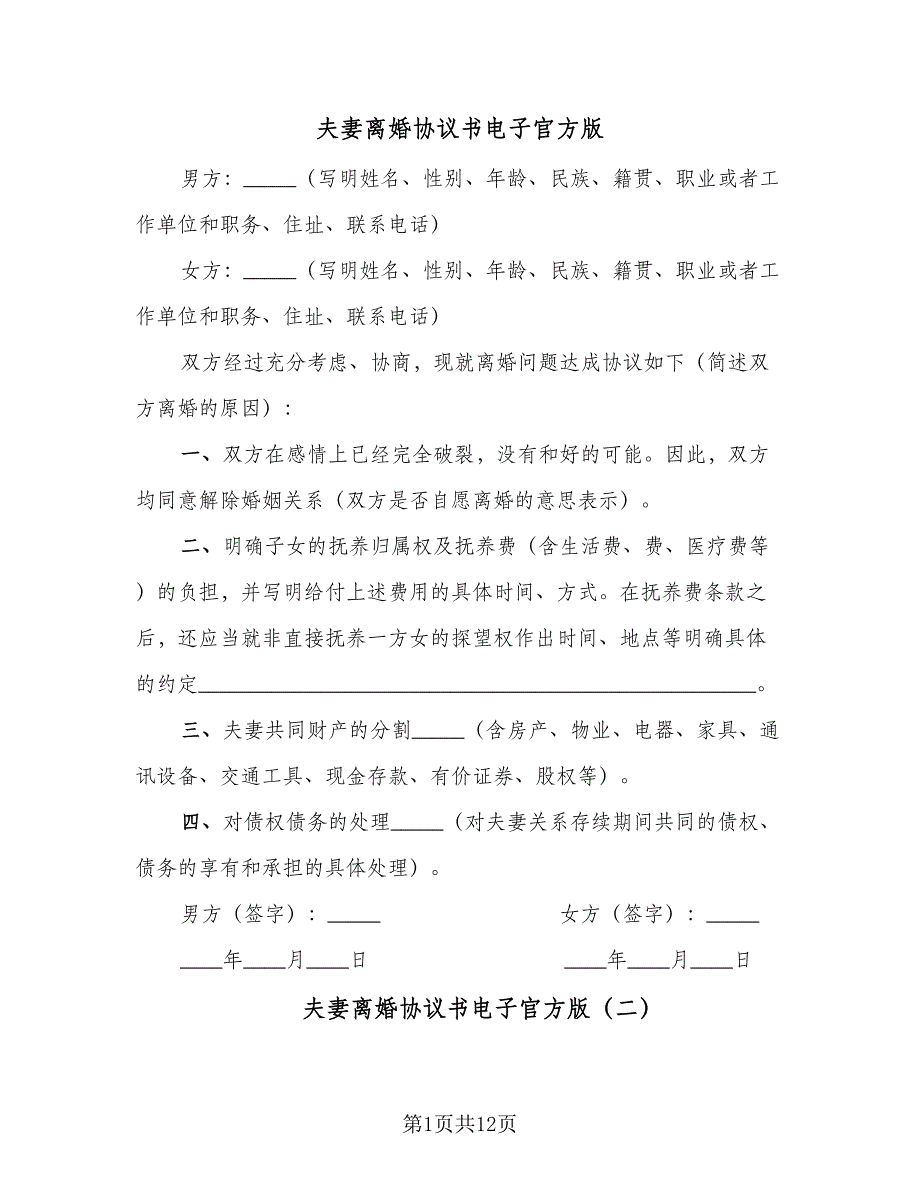 夫妻离婚协议书电子官方版
男方：_____（写明姓名、性别、年龄、民族、籍贯、职业或者工
作单位和职务、住址、联系电话）
女方：_____（写明姓名、性别、年龄、民族、籍贯、职业或者工
作单位和职务、住址、联系电话）
双方经过充分考虑、协商，现就离婚问题达成协议如下（简述双
方离婚的原因）：
一、双方在感情上已经完全破裂，没有和好的可能。因此，双方
均同意解除婚姻关系（双方是否自愿离婚的意思表示）。
二、明确子女的抚养归属权及抚养费（含生活费、费、医疗费等
）的负担，并写明给付上述费用的具体时间、方式。在抚养费条款之
后，还应当就非直接抚养一方女的探望权作出时间、地点等明确具体
的约定_____________________________________________________。
三、夫妻共同财产的分割_____（含房产、物业、电器、家具、通
讯设备、交通工具、现金存款、有价证券、股权等）。
四、对债权债务的处理_____（对夫妻关系存续期间共同的债权、
债务的享有和承担的具体处理）。
男方（签字）：_____ 女方（签字）：_____
____年____月____日 ____年____月____日
夫妻离婚协议书电子官方版（二）
第1页共12页